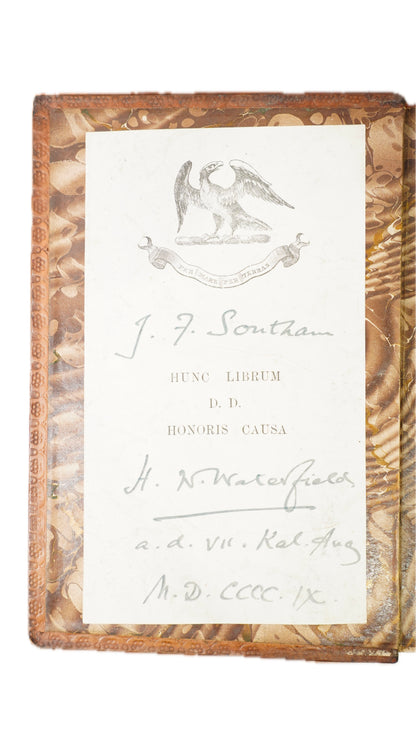 PER MARE PER TERRAS
J. F. Southam
HUNC LIBRUM
D. D.
HONORIS CAUSA
H. N. Waterfield
a.d. VII. Kal. Aug
M. D. CCCC. IX.